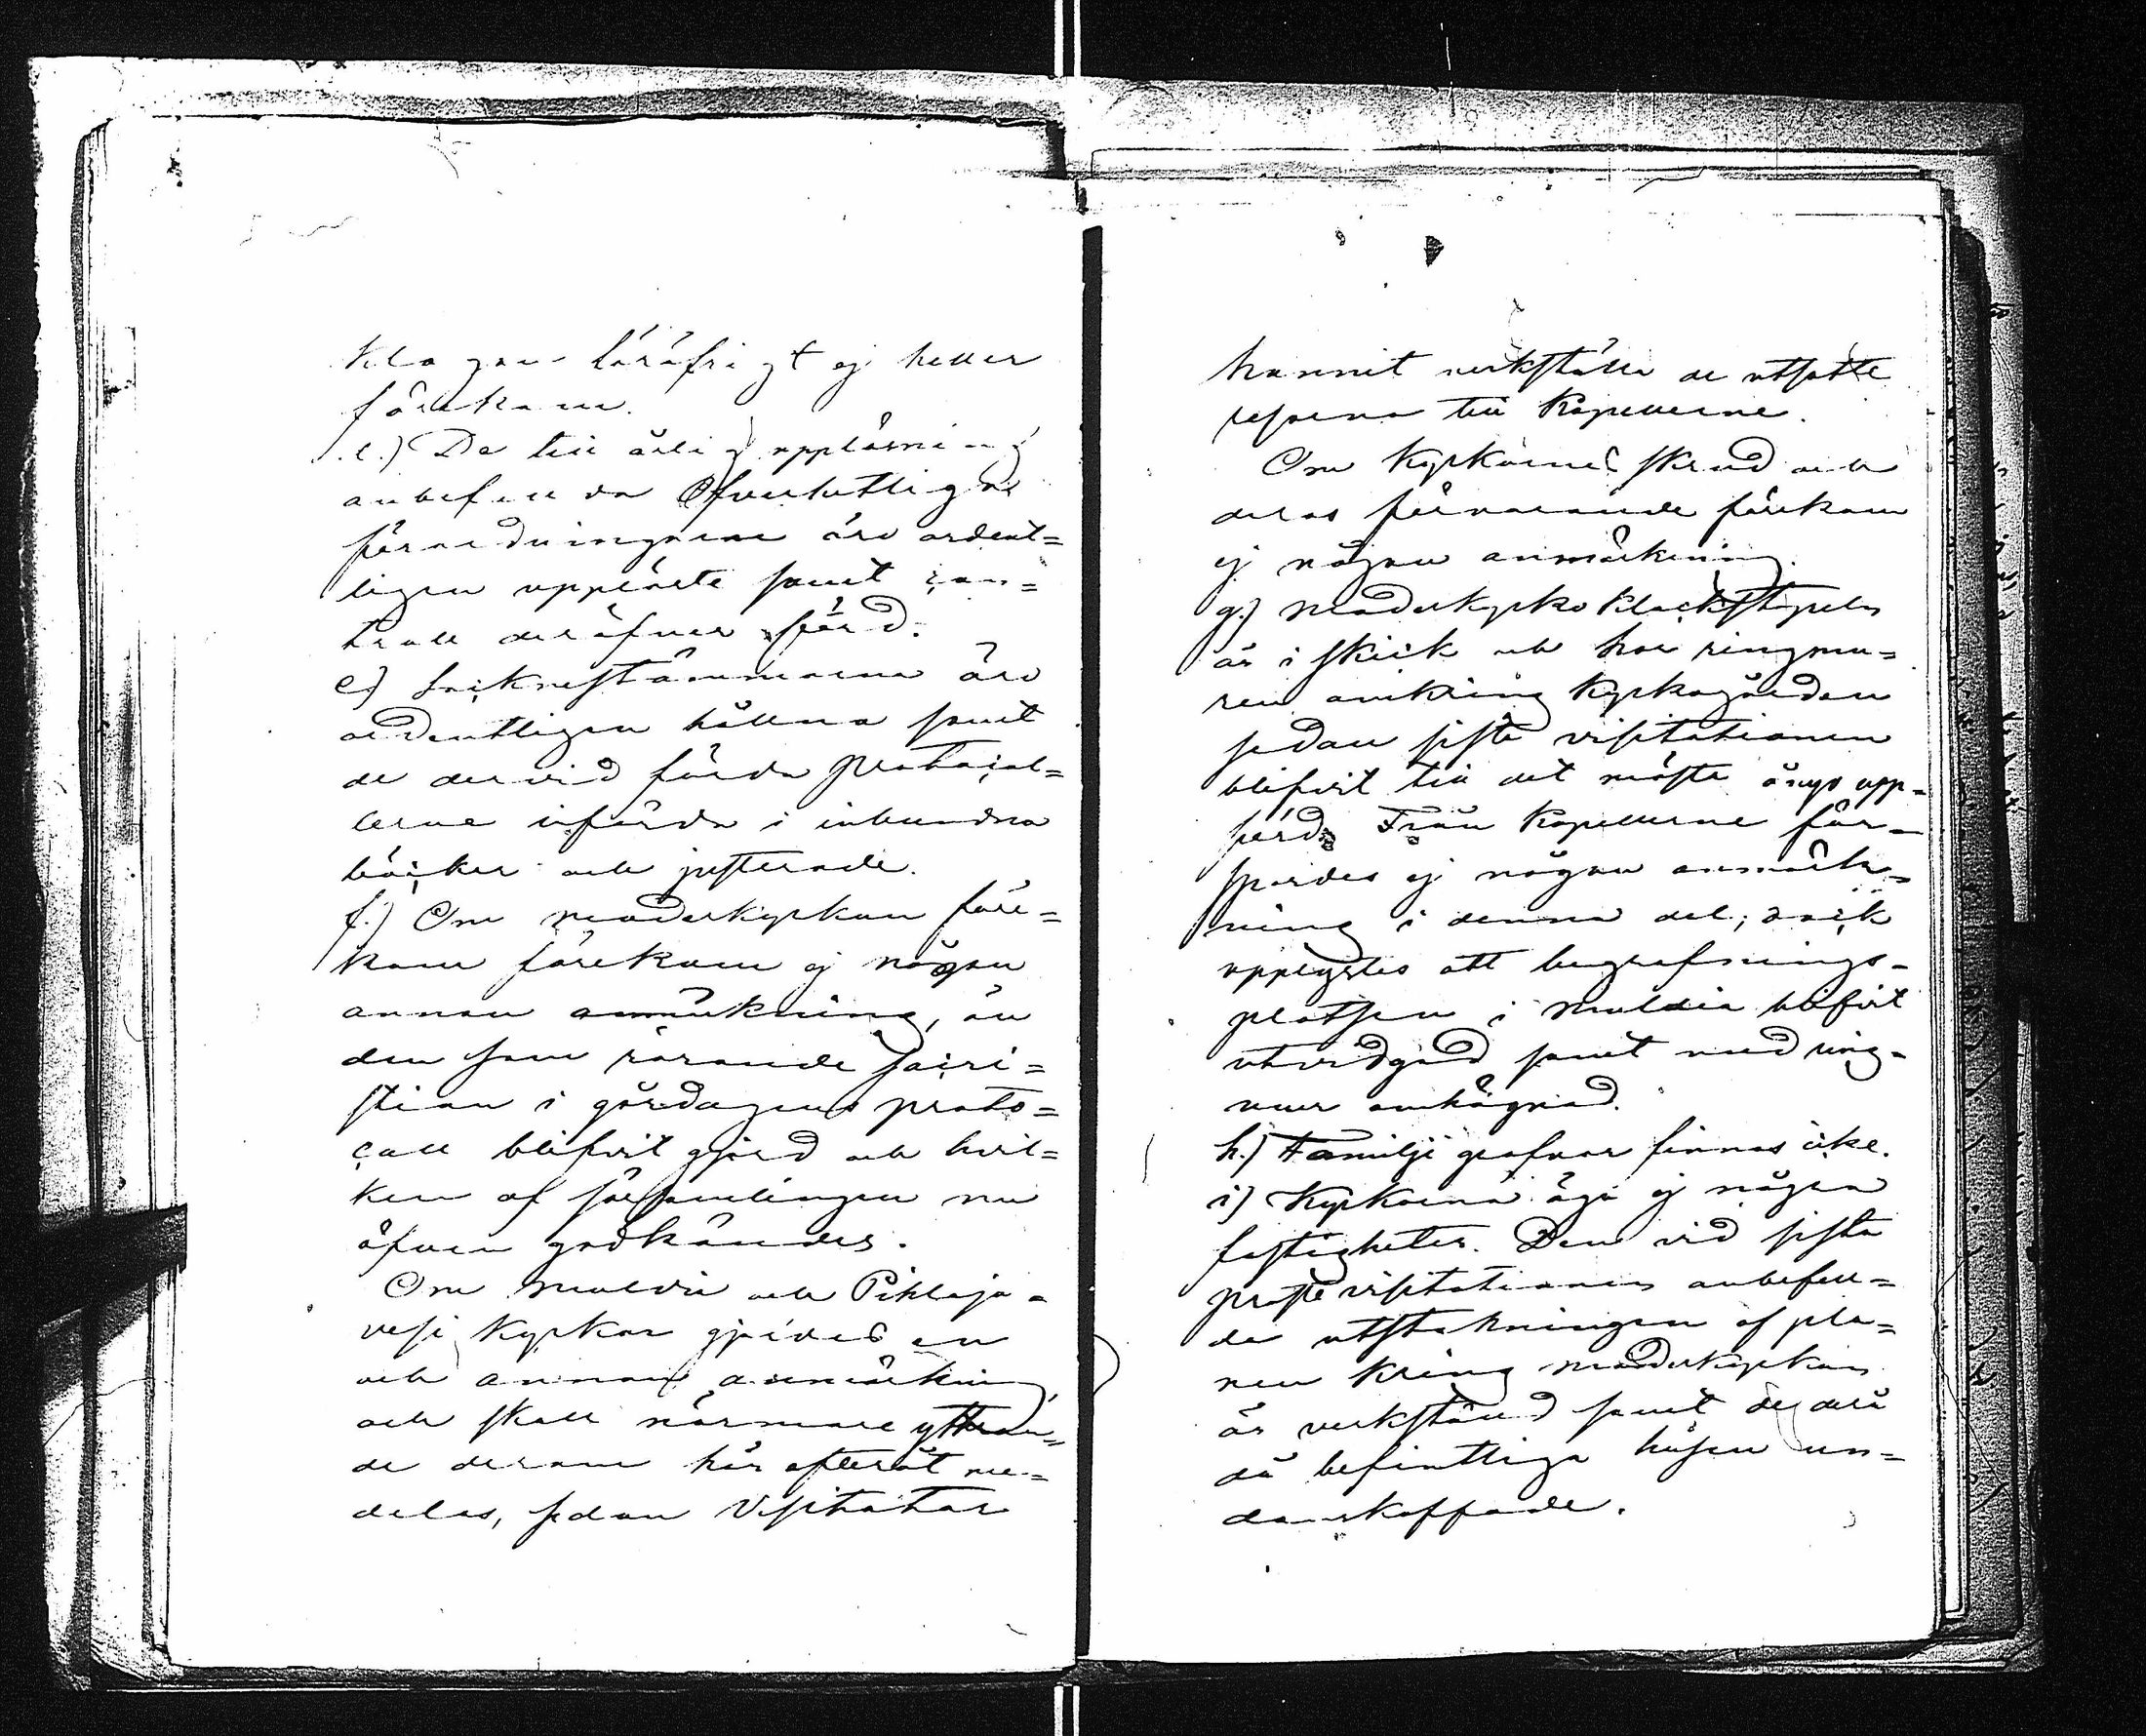 klagan häröfri gt ej heller
förekom.
d.) De till årlig uppläsning
anbefallda Öfverhetliga
förordningarne äro ordent=
ligen upplästa samt con=
troll deröfver förd.
e) Socknestämmorna äro
ordentligen hållna samt
de dervid förda protocol=
lerne införda i inbundna
böcker och justerade.
f.) Om moderkyrkan före=
kom förekom ej någon
annan anmärkning, än
den som rörande sacri=
stian i gårdagens proto=
coll blifvit gjord och hvil=
ken af församlingen nu
äfven godkändes.
Om Muldia och Pihlaja=
vesi kyrkor gjordes en
och annan anmärkning
och skall närmare yttran=
de derom här efteråt med=
delas, sedan Visitator
hunnit verkställa de utsatte
resorna till Kapellerne.
Om Kyrkornes skrud och
deras förvarande förekom
ej någon anmärkning.
g.) Moderkyrko Klockstapeln
är i skick och har ringmu=
ren omkring Kyrkogården
sedan sista visitationen
blifvit till det mesta ånyo upp=
förd. Från Kapellerne för=
spordes ej någon anmärk=
ning i denna del; dock
upplystes att begrafnings=
platsen i Muldia blifvit
utvidgad samt med ring=
mur omhägnad.
h.) Familje grafvar finnas icke.
i) Kyrkorna äga ej några
fastigheter. Den vid sista
prostevisitationen anbefall=
da utstakningen af pla=
nen kring moderkyrkan
är verkställd samt de der å
då befintliga husen un=
danskaffade.